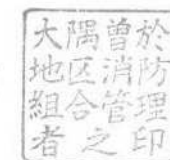 大隅曾於
地区消防
組合管理
者之印